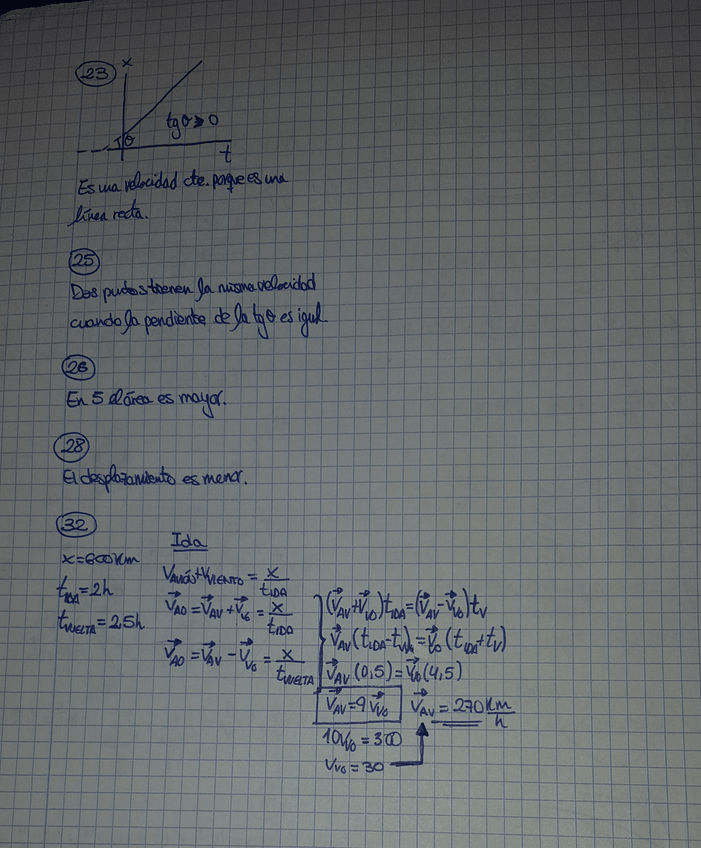 23
x
θ
tgθ > 0
t
Es una velocidad cte. porque es una
línea recta.
25
Dos puntos tienen la misma velocidad
cuando la pendiente de la tgθ es igual.
26
En 5 el área es mayor.
28
El desplazamiento es menor.
32
Ida
x=600 Km
t_IDA = 2h
t_VUELTA = 2,5h
V_AVIÓN + V_VIENTO = x/t_IDA
V⃗_AO = V⃗_AV + V⃗_VO = x/t_IDA
V⃗_AO = V⃗_AV − V⃗_VO = x/t_VUELTA
(V⃗_AV + V⃗_VO) t_IDA = (V⃗_AV − V⃗_VO) t_V
V⃗_AV (t_IDA − t_V) = V⃗_VO (t_IDA + t_V)
V⃗_AV (0,5) = V⃗_VO (4,5)
V⃗_AV = 9 V⃗_VO
V⃗_AV = 270 Km/h
10V_VO = 300
V_VO = 30